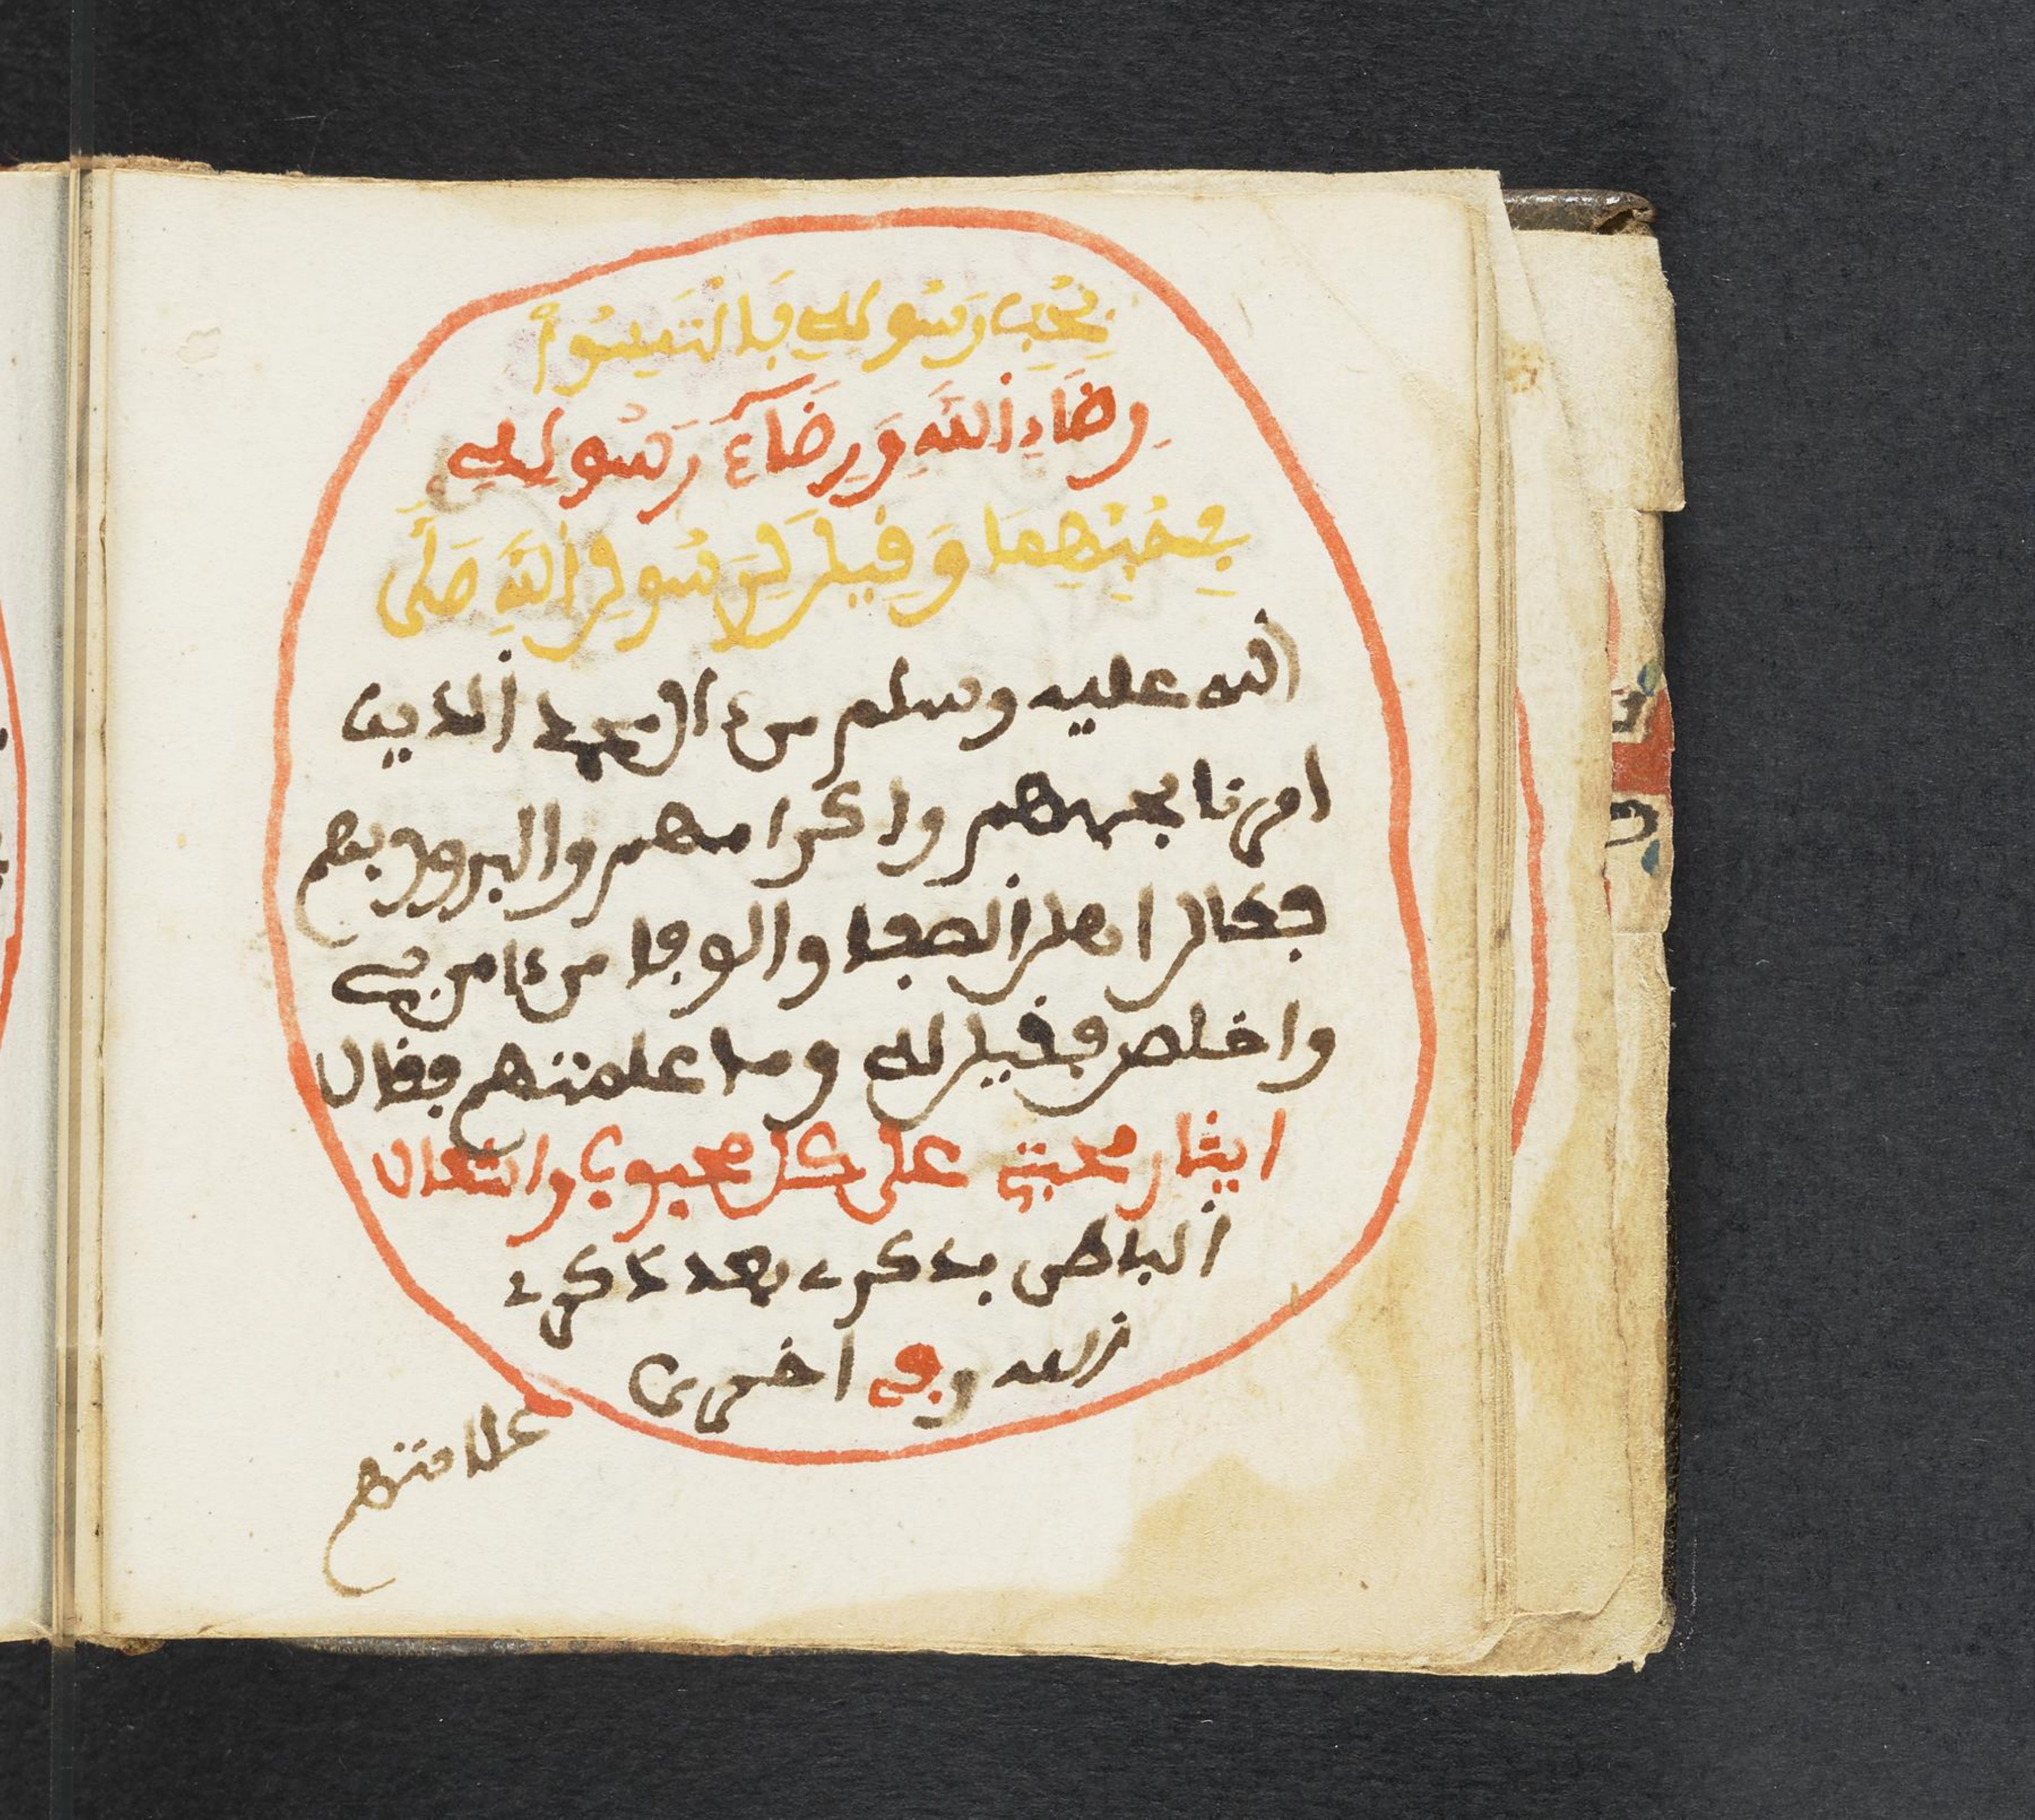 بِحُبِّ رَسُولِهِ فَالْتَمِسُوا
رِضَاءَ اللَّهِ وَرِضَاءَ رَسُولِهِ
بِحُبِّهِمَا وَقِيلَ لِرَسُولِ اللَّهِ صَلَّى
الله عليه وسلم من ءال محمد الذين
امرنا بحبهم واكرامهم والبرور بهم
فقال اهل الصفا والوفا من ءامن بي
واخلص فقيل له وما علامتهم فقال
ايثار محبتي على كل محبوب واشتغال
الباطن بذكري بعد ذكر
الله وفي اخرى
علامتهم